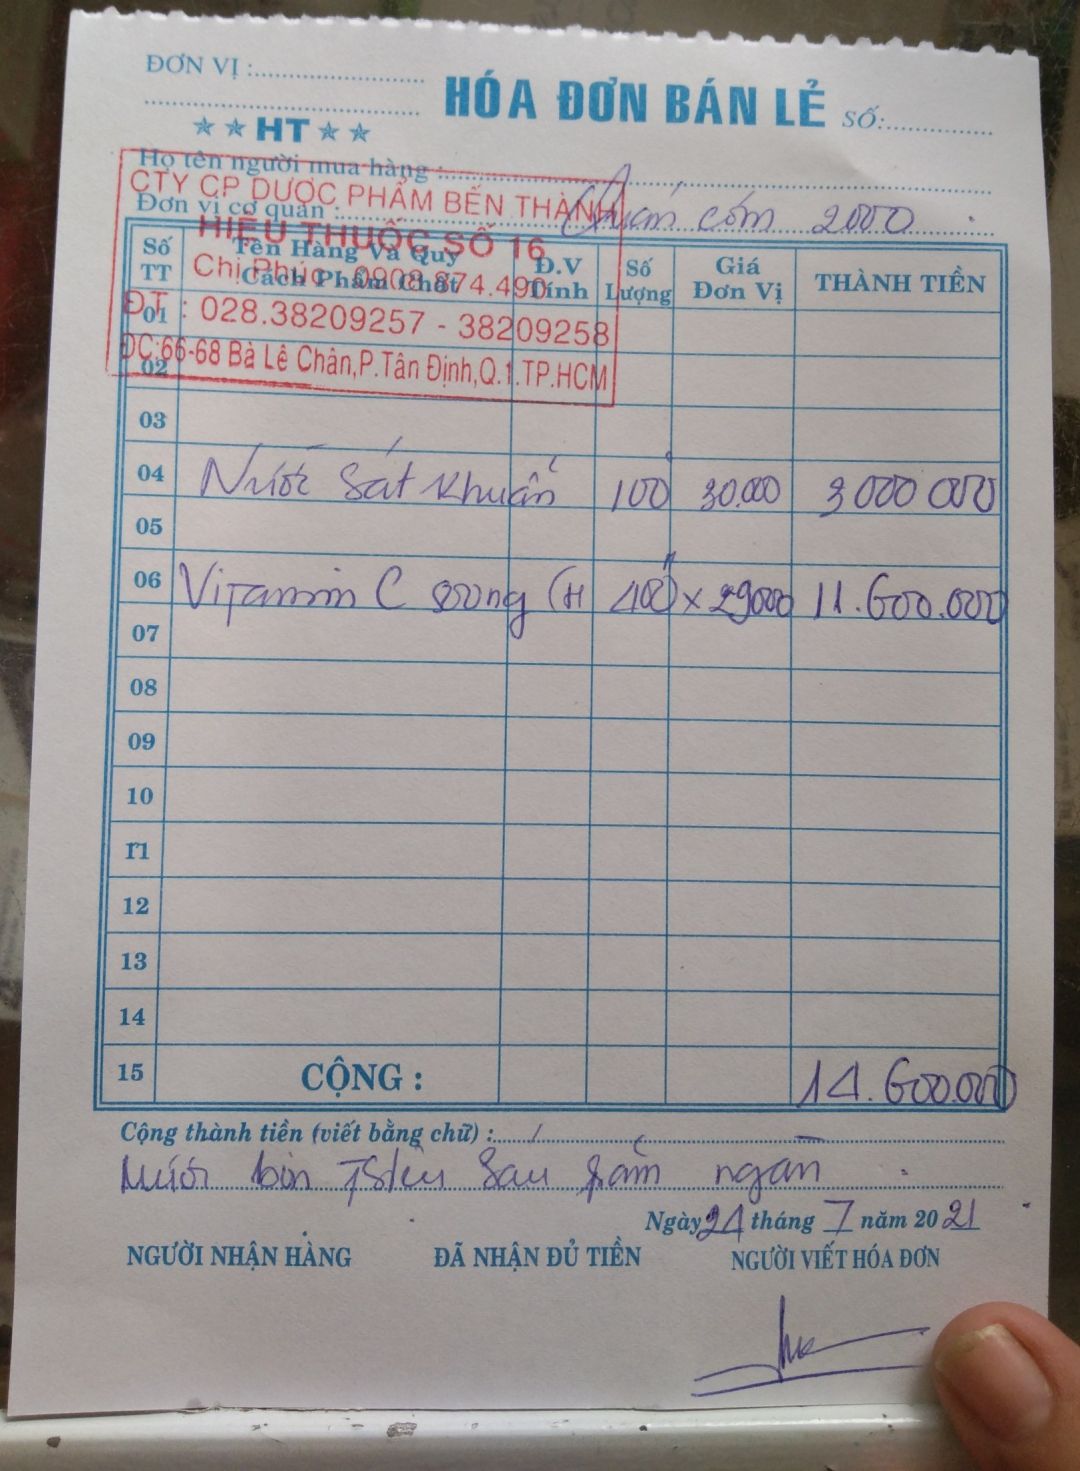 ĐƠN VỊ :
HÓA ĐƠN BÁN LẺ SỐ:
HT
Họ tên người mua hàng :
CTY CP DƯỢC PHẨM BẾN THÀNH
Đơn vị cơ quan : Quán cơm 2000
HIỆU THUỐC SỐ 16
Số TT Tên Hàng Và Quy Cách Phẩm Chất Đ.V Tính Số Lượng Giá Đơn Vị THÀNH TIỀN
Chị Phúc 0908.874.490
01
ĐT : 028.38209257 - 38209258
ĐC:66-68 Bà Lê Chân,P.Tân Định,Q.1.TP.HCM
02
03
04 Nước Sát khuẩn 100 30.000 3000000
05
06 Vitamin C (H 400 x 29000 11.600.000
07
08
09
10
11
12
13
14
15 CỘNG : 14.600.000
Cộng thành tiền (viết bằng chữ) :
Mười bốn sáu trăm ngàn
Ngày 24 tháng 7 năm 2021
NGƯỜI NHẬN HÀNG ĐÃ NHẬN ĐỦ TIỀN NGƯỜI VIẾT HÓA ĐƠN